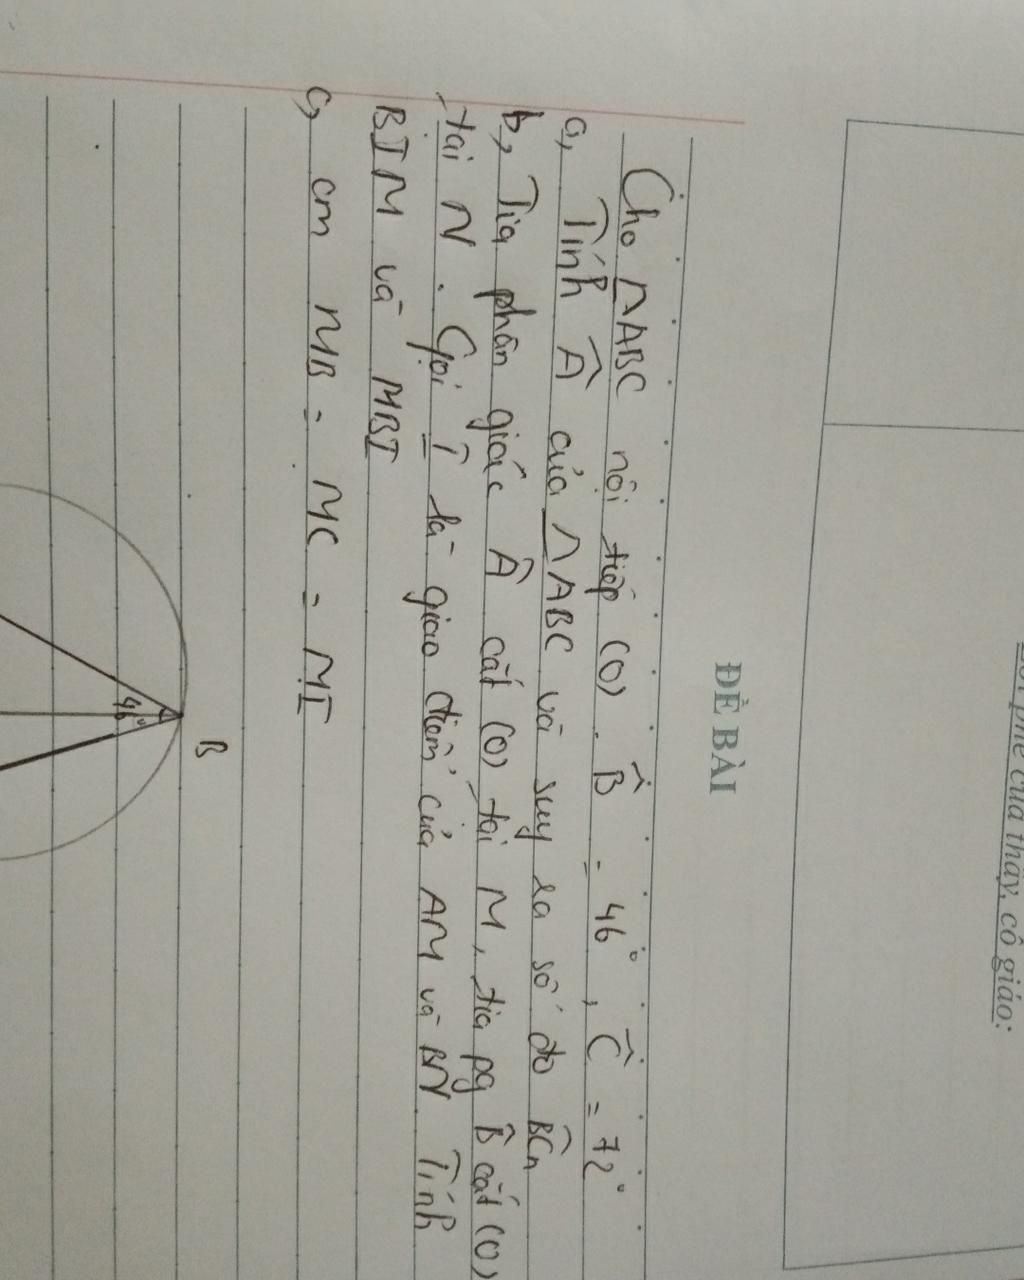 phê của thầy, cô giáo:
ĐỀ BÀI
Cho △ABC nội tiếp (O). B̂ = 46°, Ĉ = 72°
a, Tính Â của △ABC và suy ra số đo BĈn
b, Tia phân giác Â cắt (O) tại M, tia pg B̂ cắt (O)
tại N. Gọi I là giao điểm của AM và BN. Tính
BIM và MBI
c, cm MB = MC = MI
B
46°